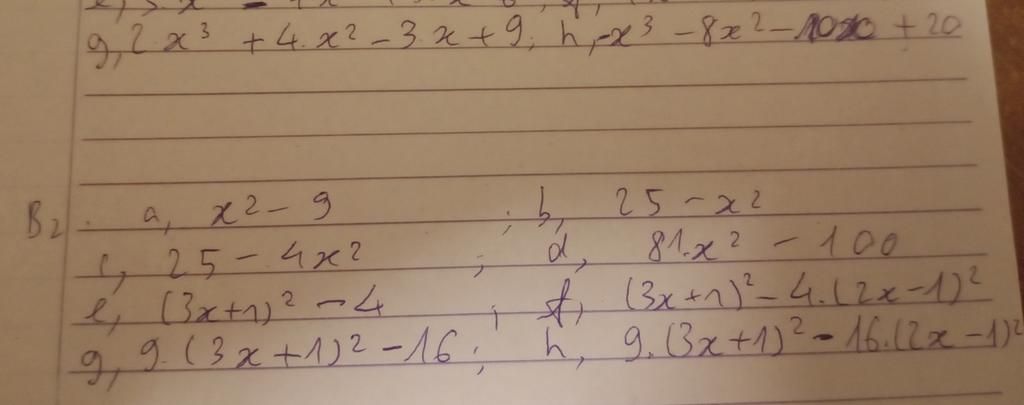 g, 2.x³ + 4.x² - 3.x + 9; h, -x³ - 8x² - 10x + 20
B2. a, x² - 9 ; b, 25 - x²
c, 25 - 4x² ; d, 81.x² - 100
e, (3x+1)² - 4 ; f, (3x+1)² - 4.(2x-1)²
g, 9.(3x+1)² - 16; h, 9.(3x+1)² - 16.(2x-1)²